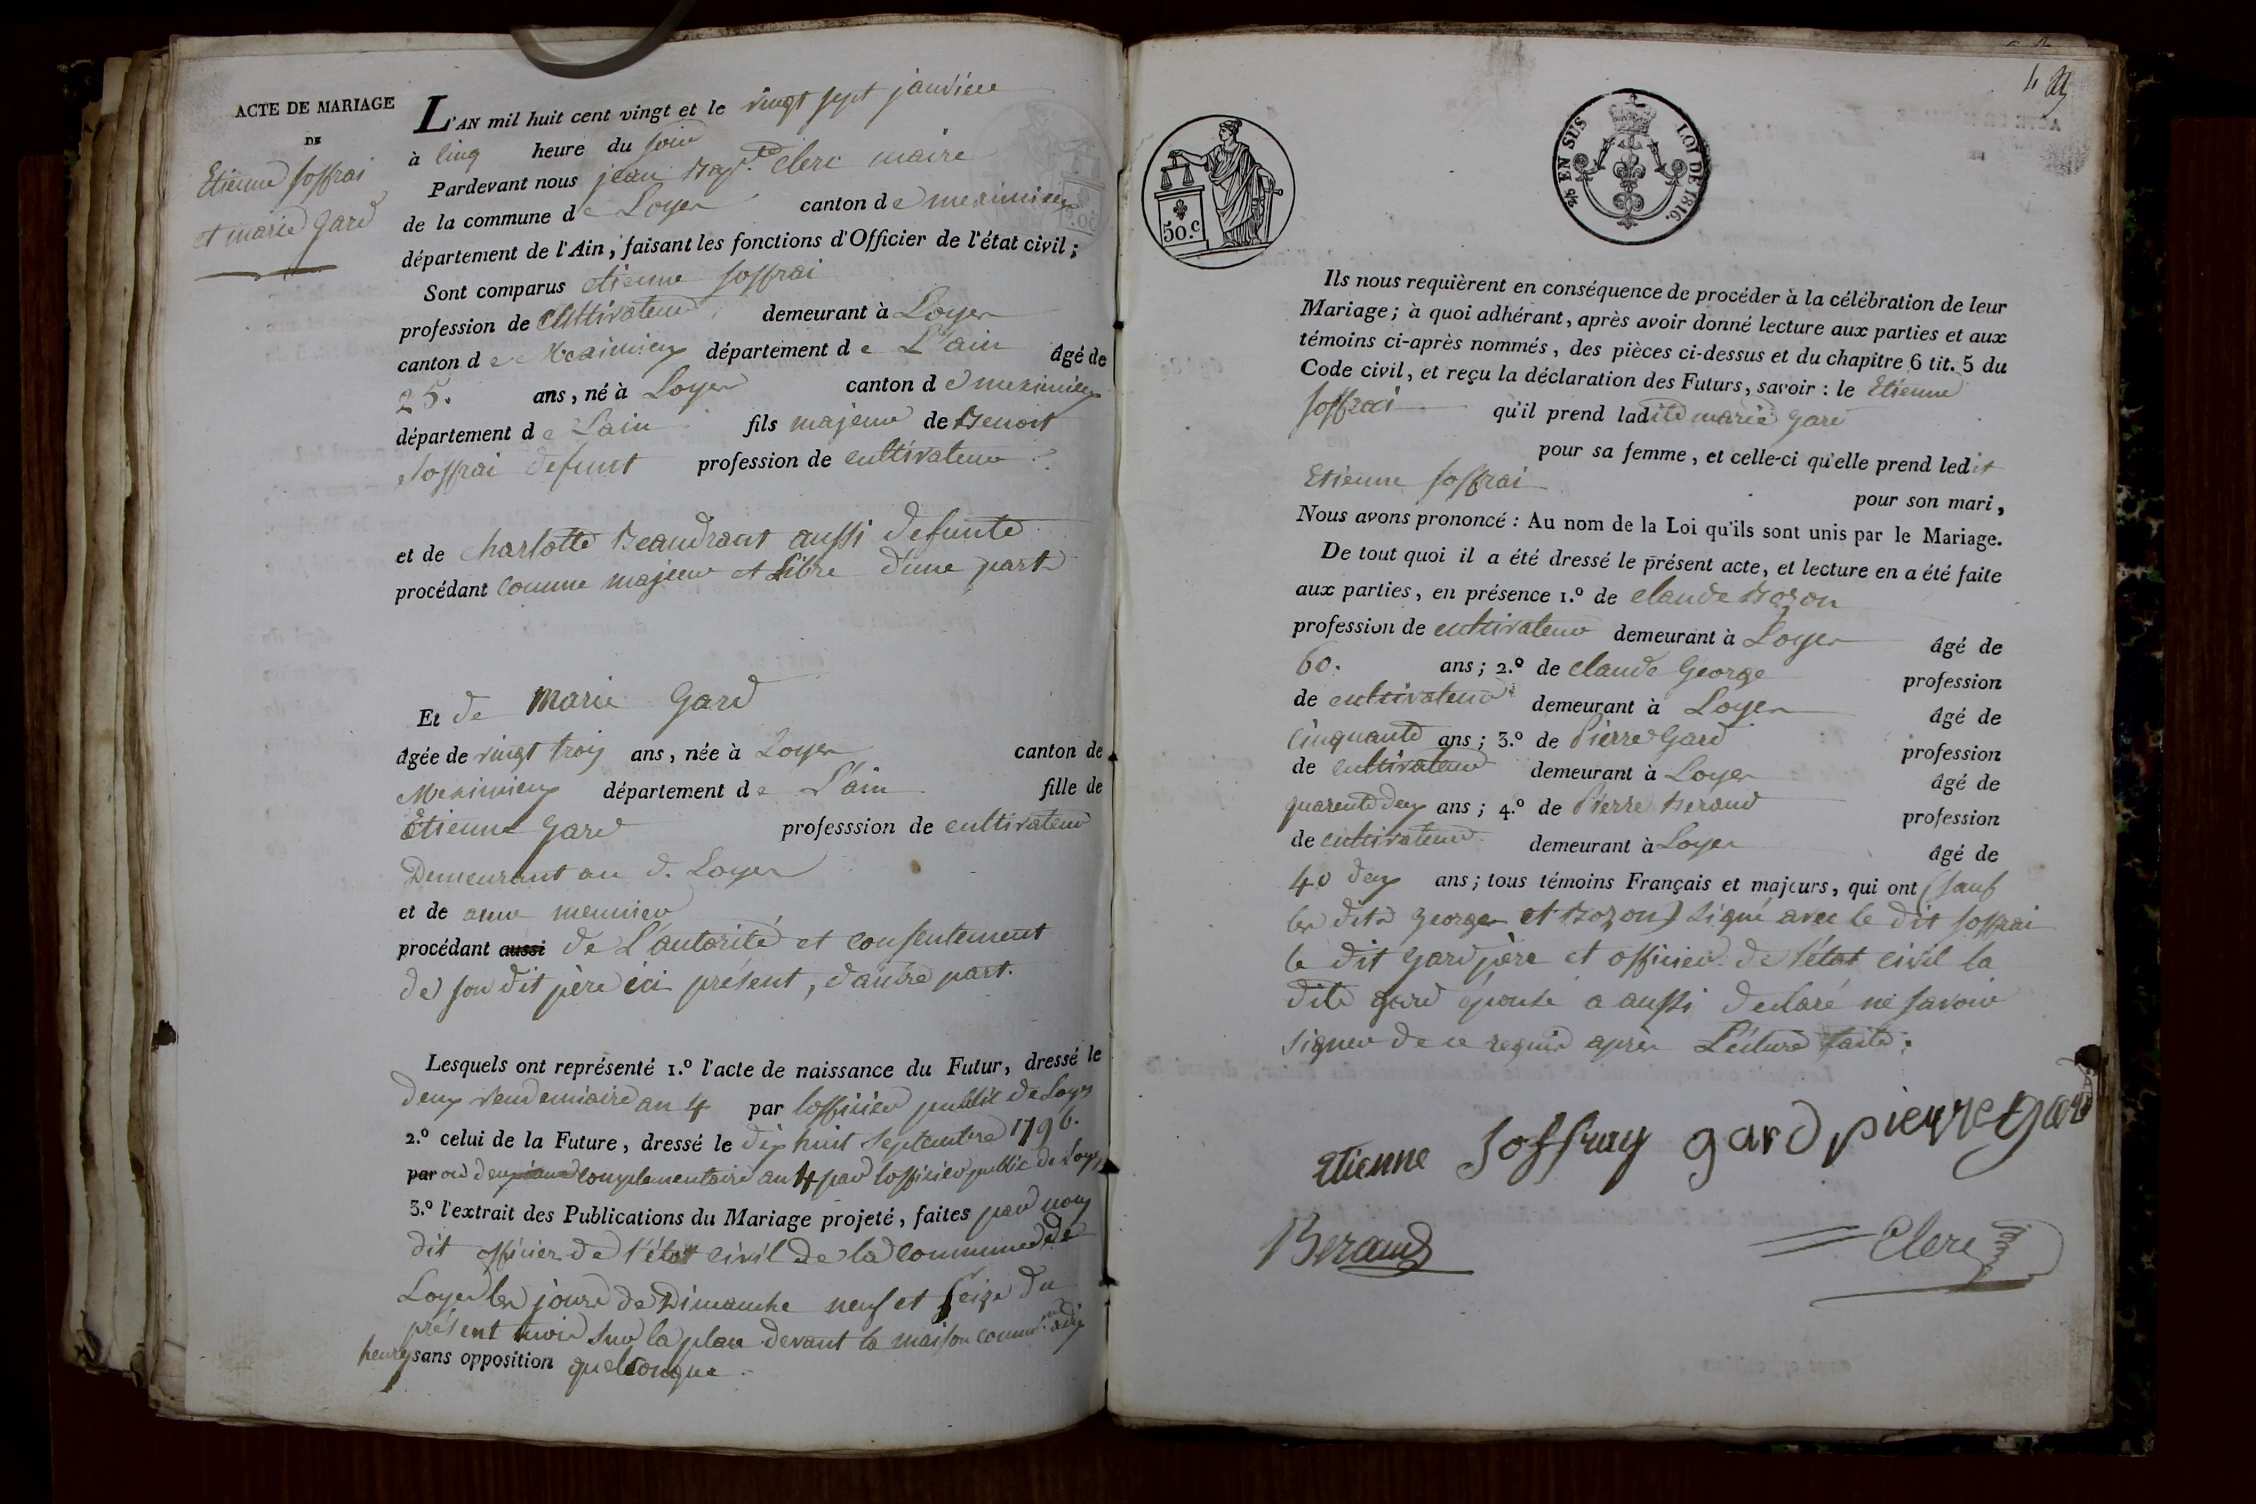 ACTE DE MARIAGE
DE
Etienne Joffrai
et marie Gard
L'AN mil huit cent vingt et le vingt sept janvier
à cinq heure du soir
Pardevant nous jean Bap.te Clerc maire
de la commune de Loyes canton de meximieux
département de l'Ain, faisant les fonctions d'Officier de l'état civil;
Sont comparus etienne Joffrai
profession de Cultivateur demeurant à Loyes
canton de Meximieux département de L'ain âgé de
25. ans, né à Loyes canton de meximieux
département de Lain fils majeur de Benoit
Joffrai defunt profession de cultivateur
et de charlotte Beaudrant aussi defunte
procédant comme majeur et Libre d'une part
Et de Marie Gard
âgée de vingt trois ans, née à Loyes canton de
Meximieux département de L'ain fille de
Etienne Gard professsion de cultivateur
Demeurant au d. Loyes
et de anne meunier
procédant aussi de L'autorité et consentement
de son dit père ici présent, d'autre part.
Lesquels ont représenté 1.º l'acte de naissance du Futur, dressé le
deux vendemiaire an 4 par lofficier public de Loyes
2.º celui de la Future, dressé le dix huit septembre 1796.
par ou deux complementaire an 4 par lofficier public de Loyes
3.º l'extrait des Publications du Mariage projeté, faites par nous
dit officier de l'état civil de la commune de
Loyes les jours de Dimanche neuf et seize du
présent mois sur la place devant la maison comm.ne à dix
heures sans opposition quelconque.
50.c
2/5 EN SUS LOI DE 1816.
Ils nous requièrent en conséquence de procéder à la célébration de leur
Mariage; à quoi adhérant, après avoir donné lecture aux parties et aux
témoins ci-après nommés, des pièces ci-dessus et du chapitre 6 tit. 5 du
Code civil, et reçu la déclaration des Futurs, savoir: le Etienne
Joffrai qu'il prend ladite marie gard
pour sa femme, et celle-ci qu'elle prend ledit
Etienne Joffrai pour son mari,
Nous avons prononcé: Au nom de la Loi qu'ils sont unis par le Mariage.
De tout quoi il a été dressé le présent acte, et lecture en a été faite
aux parties, en présence 1.º de claude Bozon
profession de cultivateur demeurant à Loyes âgé de
60. ans; 2.º de claude George profession
de cultivateur demeurant à Loyes âgé de
cinquante ans; 3.º de Pierre Gard profession
de cultivateur demeurant à Loyes âgé de
quarente deux ans; 4.º de Pierre Beraud profession
de cultivateur demeurant à Loyes âgé de
40 deux ans; tous témoins Français et majeurs, qui ont (sauf
les dits George et Bozon) signé avec le dit Joffrai
le dit gard père et officier de l'état civil la
dite gard épouse a aussi declaré ne savoir
signer de ce requis après Lecture faite.
Etienne Joffray gard pierre gard
Beraud Clerc